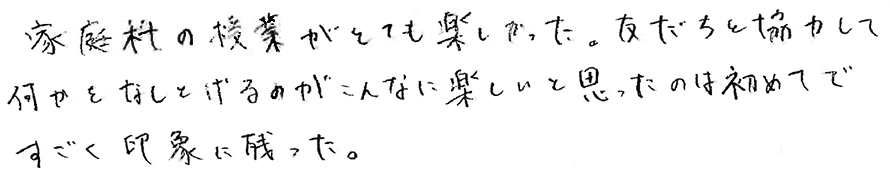 家庭科の授業がとても楽しかった。友だちと協力して
何かをなしとげるのがこんなに楽しいと思ったのは初めてで
すごく印象に残った。